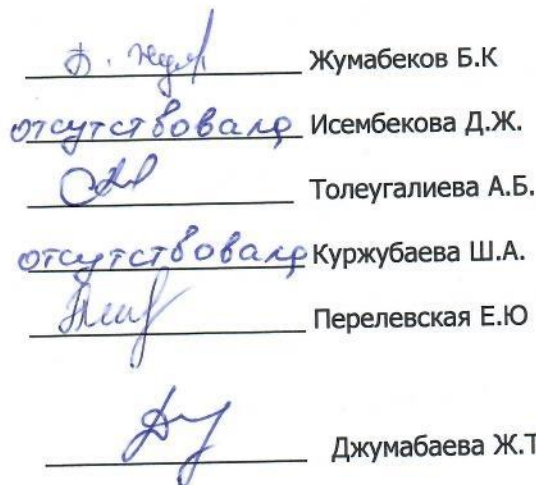 Б. Жум Жумабеков Б.К
отсутствовала Исембекова Д.Ж.
Толеугалиева А.Б.
отсутствовала Куржубаева Ш.А.
Перелевская Е.Ю
Джумабаева Ж.Т